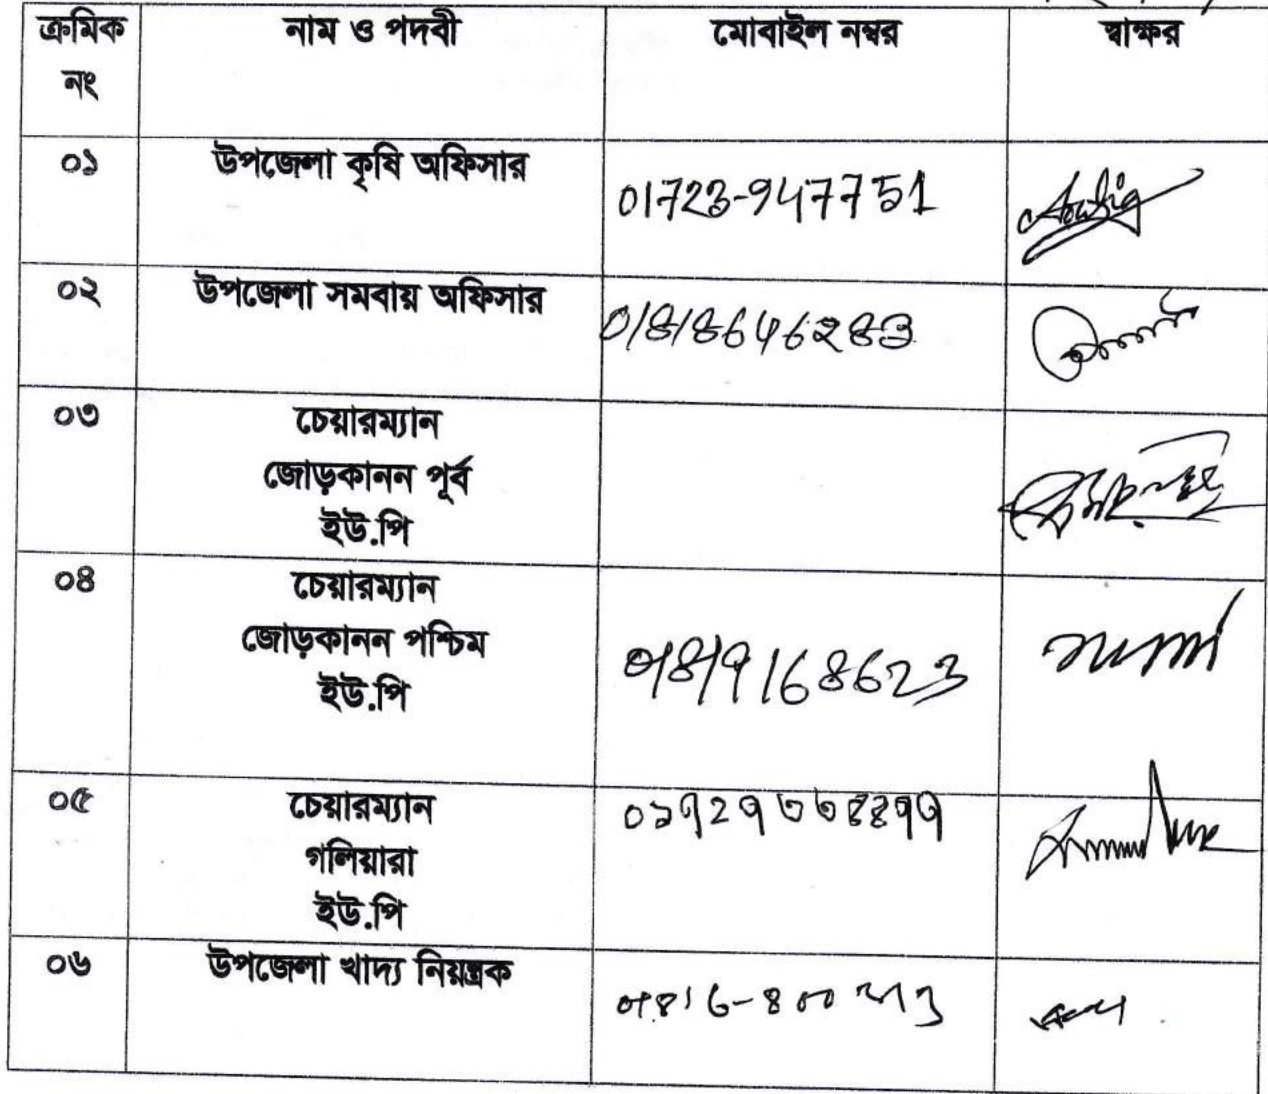 ক্রমিক নাম ও পদবী মোবাইল নম্বর স্বাক্ষর
নং
০১ উপজেলা কৃষি অফিসার 01723-947751
০২ উপজেলা সমবায় অফিসার 01818646283
০৩ চেয়ারম্যান
জোড়কানন পূর্ব
ইউ.পি
০৪ চেয়ারম্যান
জোড়কানন পশ্চিম 01819168623
ইউ.পি
০৫ চেয়ারম্যান
গলিয়ারা
ইউ.পি
০৬ উপজেলা খাদ্য নিয়ন্ত্রক